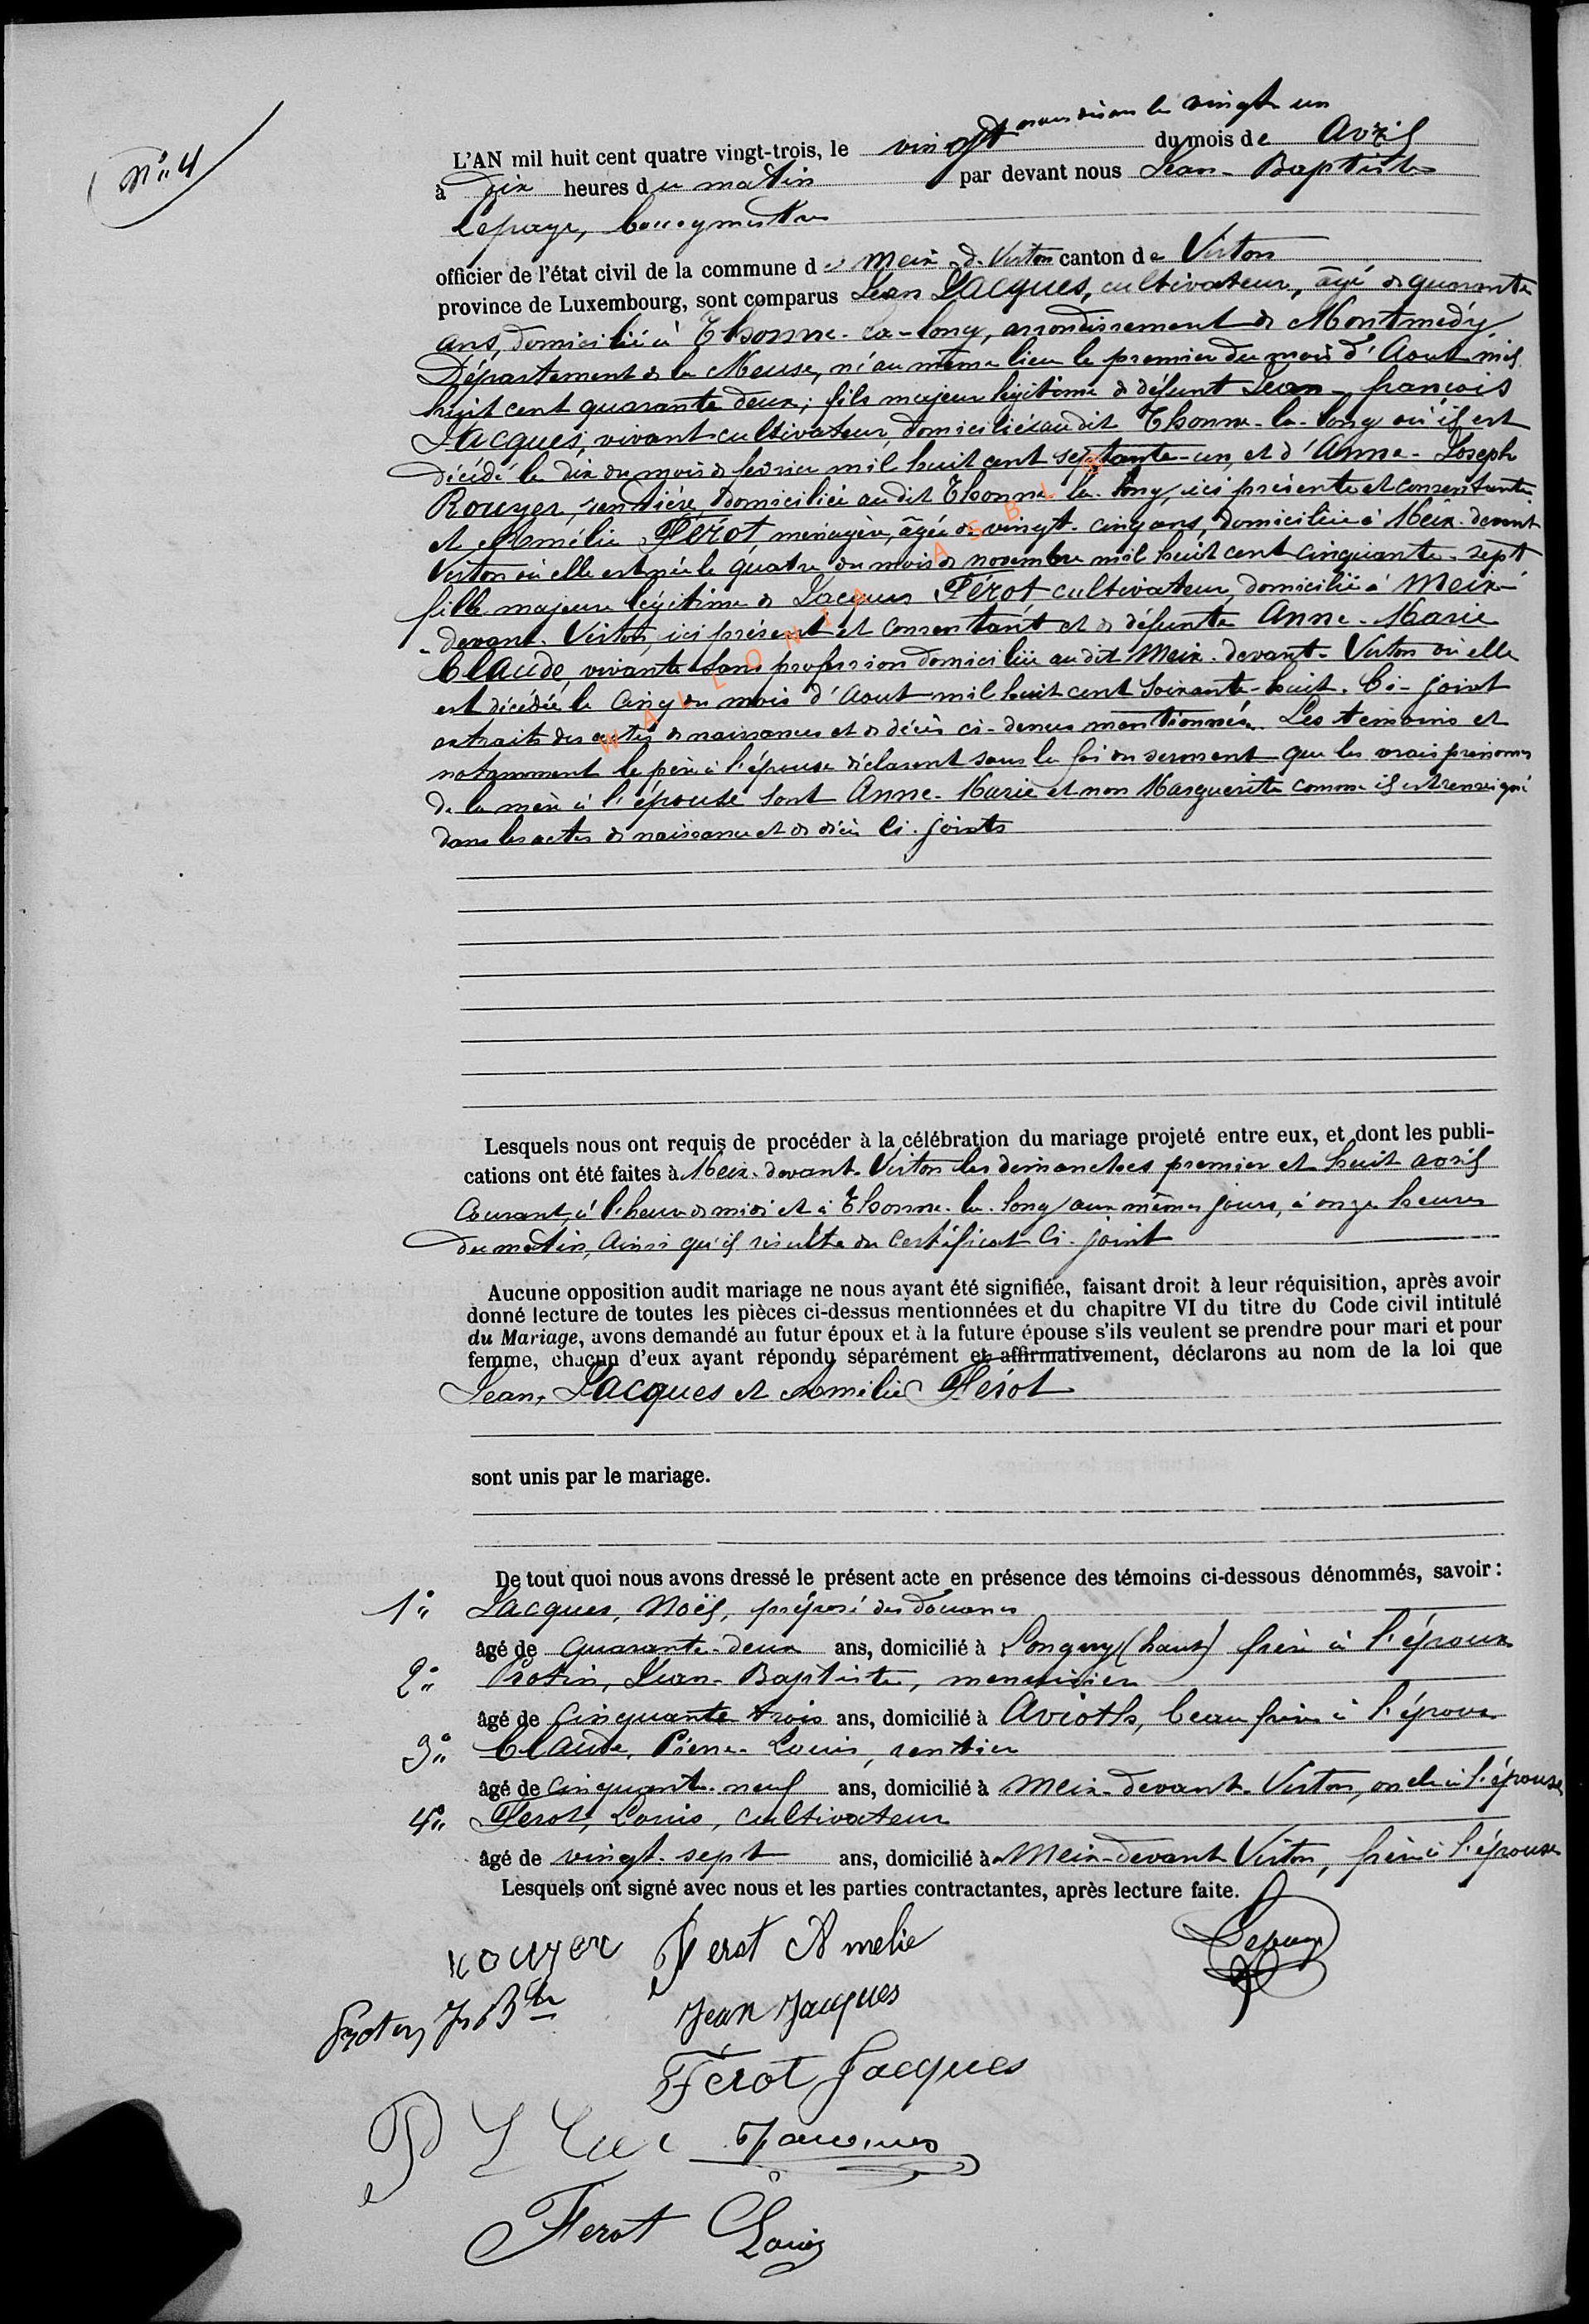 N° 4
nous disons le vingt un
L'AN mil huit cent quatre vingt-trois, le vingt du mois de Avril
à dix heures du matin par devant nous Jean-Baptiste
Lepage, bourgmestre
officier de l'état civil de la commune de Meix-d-Virton canton de Virton
province de Luxembourg, sont comparus Jean Jacques, cultivateur, âgé de quarante
ans, domicilié à Thonne-la-long, arrondissement de Montmédy
Département de la Meuse, né au même lieu le premier du mois d'Aout mil
huit cent quarante deux; fils majeur légitime de défunt Jean-françois
Jacques, vivant cultivateur, domicilié audit Thonne-la-long où il est
décédé le dix du mois de fevrier mil huit cent septante-un, et d'Anne-Joseph
Rouyer, rentière, domiciliée audit Thonne-la-long, ici présente et consentante
et Amélie Férot, menagère, âgée de vingt-cinq ans, domiciliée à Meix-devant
Virton où elle est née le quatre du mois de novembre mil huit cent cinquante-sept
fille majeure légitime de Jacques Férot, cultivateur, domicilié à Meix-
-devant-Virton, ici présent et consentant et de défunte Anne-Marie
Claude, vivante sans profession domiciliée audit Meix-devant-Virton où elle
est décédée le cinq du mois d'Aout mil huit cent soixante-huit. Ci-joint
extraits des actes de naissances et de décès ci-dessus mentionnés. Les temoins et
notamment le père à l'épouse déclarent sous la foi du serment que les vrais prénoms
de la mère à l'épouse sont Anne-Marie et non Marguerite comme il est renseigné
dans les actes de naissance et de décès ci-joints
WALLONIA ASBL ®
Lesquels nous ont requis de procéder à la célébration du mariage projeté entre eux, et dont les publi-
cations ont été faites à Meix-devant-Virton les dimanches premier et huit avril
Courant, à l'heure de midi et à Thonne-la-long aux mêmes jours, à onze heures
du matin, ainsi qu'il résulte du certificat ci-joint
Aucune opposition audit mariage ne nous ayant été signifiée, faisant droit à leur réquisition, après avoir
donné lecture de toutes les pièces ci-dessus mentionnées et du chapitre VI du titre du Code civil intitulé
du Mariage, avons demandé au futur époux et à la future épouse s'ils veulent se prendre pour mari et pour
femme, chacun d'eux ayant répondu séparément et affirmativement, déclarons au nom de la loi que
Jean, Jacques et Amélie Férot
sont unis par le mariage.
De tout quoi nous avons dressé le présent acte en présence des témoins ci-dessous dénommés, savoir:
1° Jacques, Noël, préposé des douanes
âgé de quarante-deux ans, domicilié à Longwy (haut) frère à l'époux
2° Protin, Jean-Baptiste, menuisier
âgé de Cinquante trois ans, domicilié à Avioth, beau frère à l'époux
3° Claude, Pierre-Louis, rentier
âgé de cinquante-neuf ans, domicilié à Meix-devant-Virton, oncle à l'épouse
4° Ferot, Louis, cultivateur
âgé de vingt-sept ans, domicilié à Meix-devant Virton, frère à l'épouse
Lesquels ont signé avec nous et les parties contractantes, après lecture faite.
rouyer Ferot Amelie Lepage
Jean Jacques
Férot Jacques
Jacques
Ferot Louis